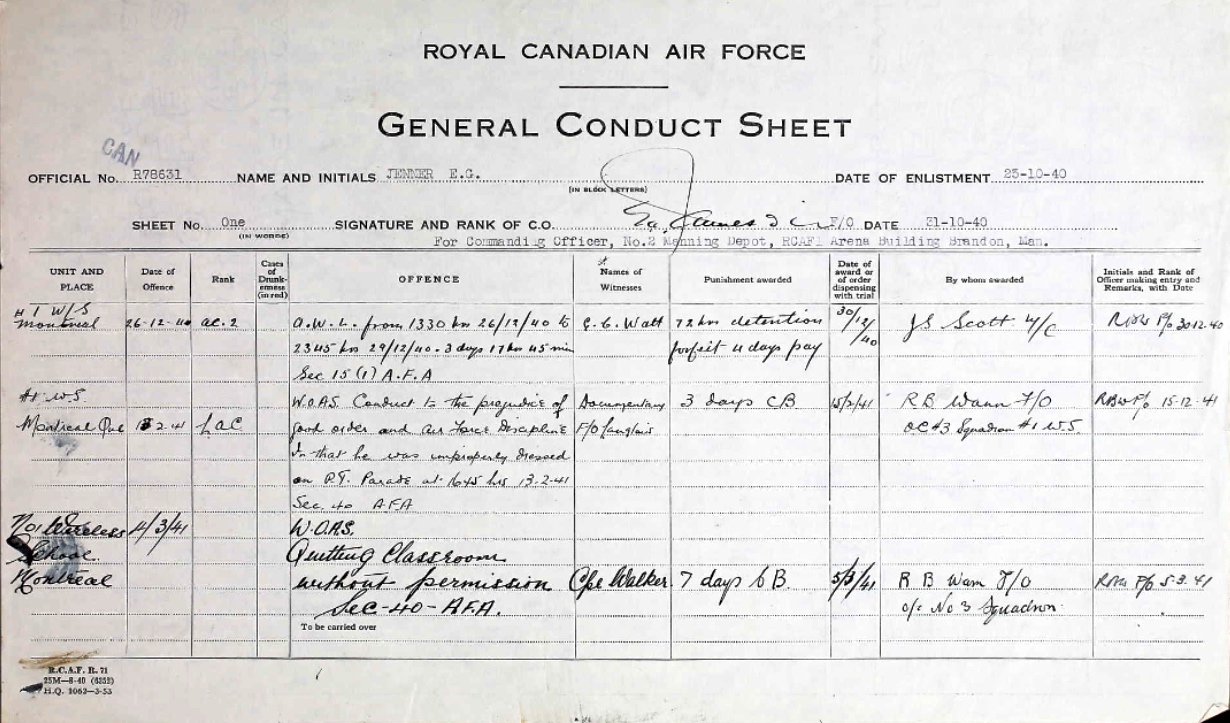 ROYAL CANADIAN AIR FORCE
GENERAL CONDUCT SHEET
CAN
OFFICIAL No. R78631 NAME AND INITIALS JENNER E.G. (IN BLOCK LETTERS) DATE OF ENLISTMENT 25-10-40
SHEET No. One (IN WORDS) SIGNATURE AND RANK OF C.O. F/O DATE 31-10-40
For Commanding Officer, No.2 Manning Depot, RCAF, Arena Building Brandon, Man.
UNIT AND PLACE
Date of Offence
Rank
Cases of Drunk-enness (in red)
OFFENCE
Names of Witnesses
Punishment awarded
Date of award or of order dispensing with trial
By whom awarded
Initials and Rank of Officer making entry and Remarks, with Date
# 1 W/S
Montreal 26-12-40 AC.2 A.W.L. from 1330 hrs 26/12/40 to G. C. Watt 72 hrs detention 30/12/40 JS Scott W/C P/O 30-12-40
2345 hrs 29/12/40. 3 days 17 hrs 45 min forfeit 4 days pay
Sec 15 (1) A.F.A
#1 W.S. W.O.A.S. Conduct to the prejudice of Documentary 3 days CB 15/2/41 R B Wann F/O RBW F/O 15-12-41
Montreal Que 13 2 41 LAC good order and Air Force Discipline F/O Langlais OC #3 Squadron #1 W.S.
In that he was improperly dressed
on P.T. Parade at 1645 hrs 13-2-41
Sec 40 AFA
No 1 Wireless 4/3/41 W.O.A.S.
School Quitting Classroom
Montreal without permission Cpl Walker 7 days C.B. 5/3/41 R B Wann F/O F/O 5.3.41
Sec-40-A.F.A. o/c No 3 Squadron
To be carried over
R.C.A.F. R. 71
25M—8-40 (6352)
H.Q. 1062—3-53